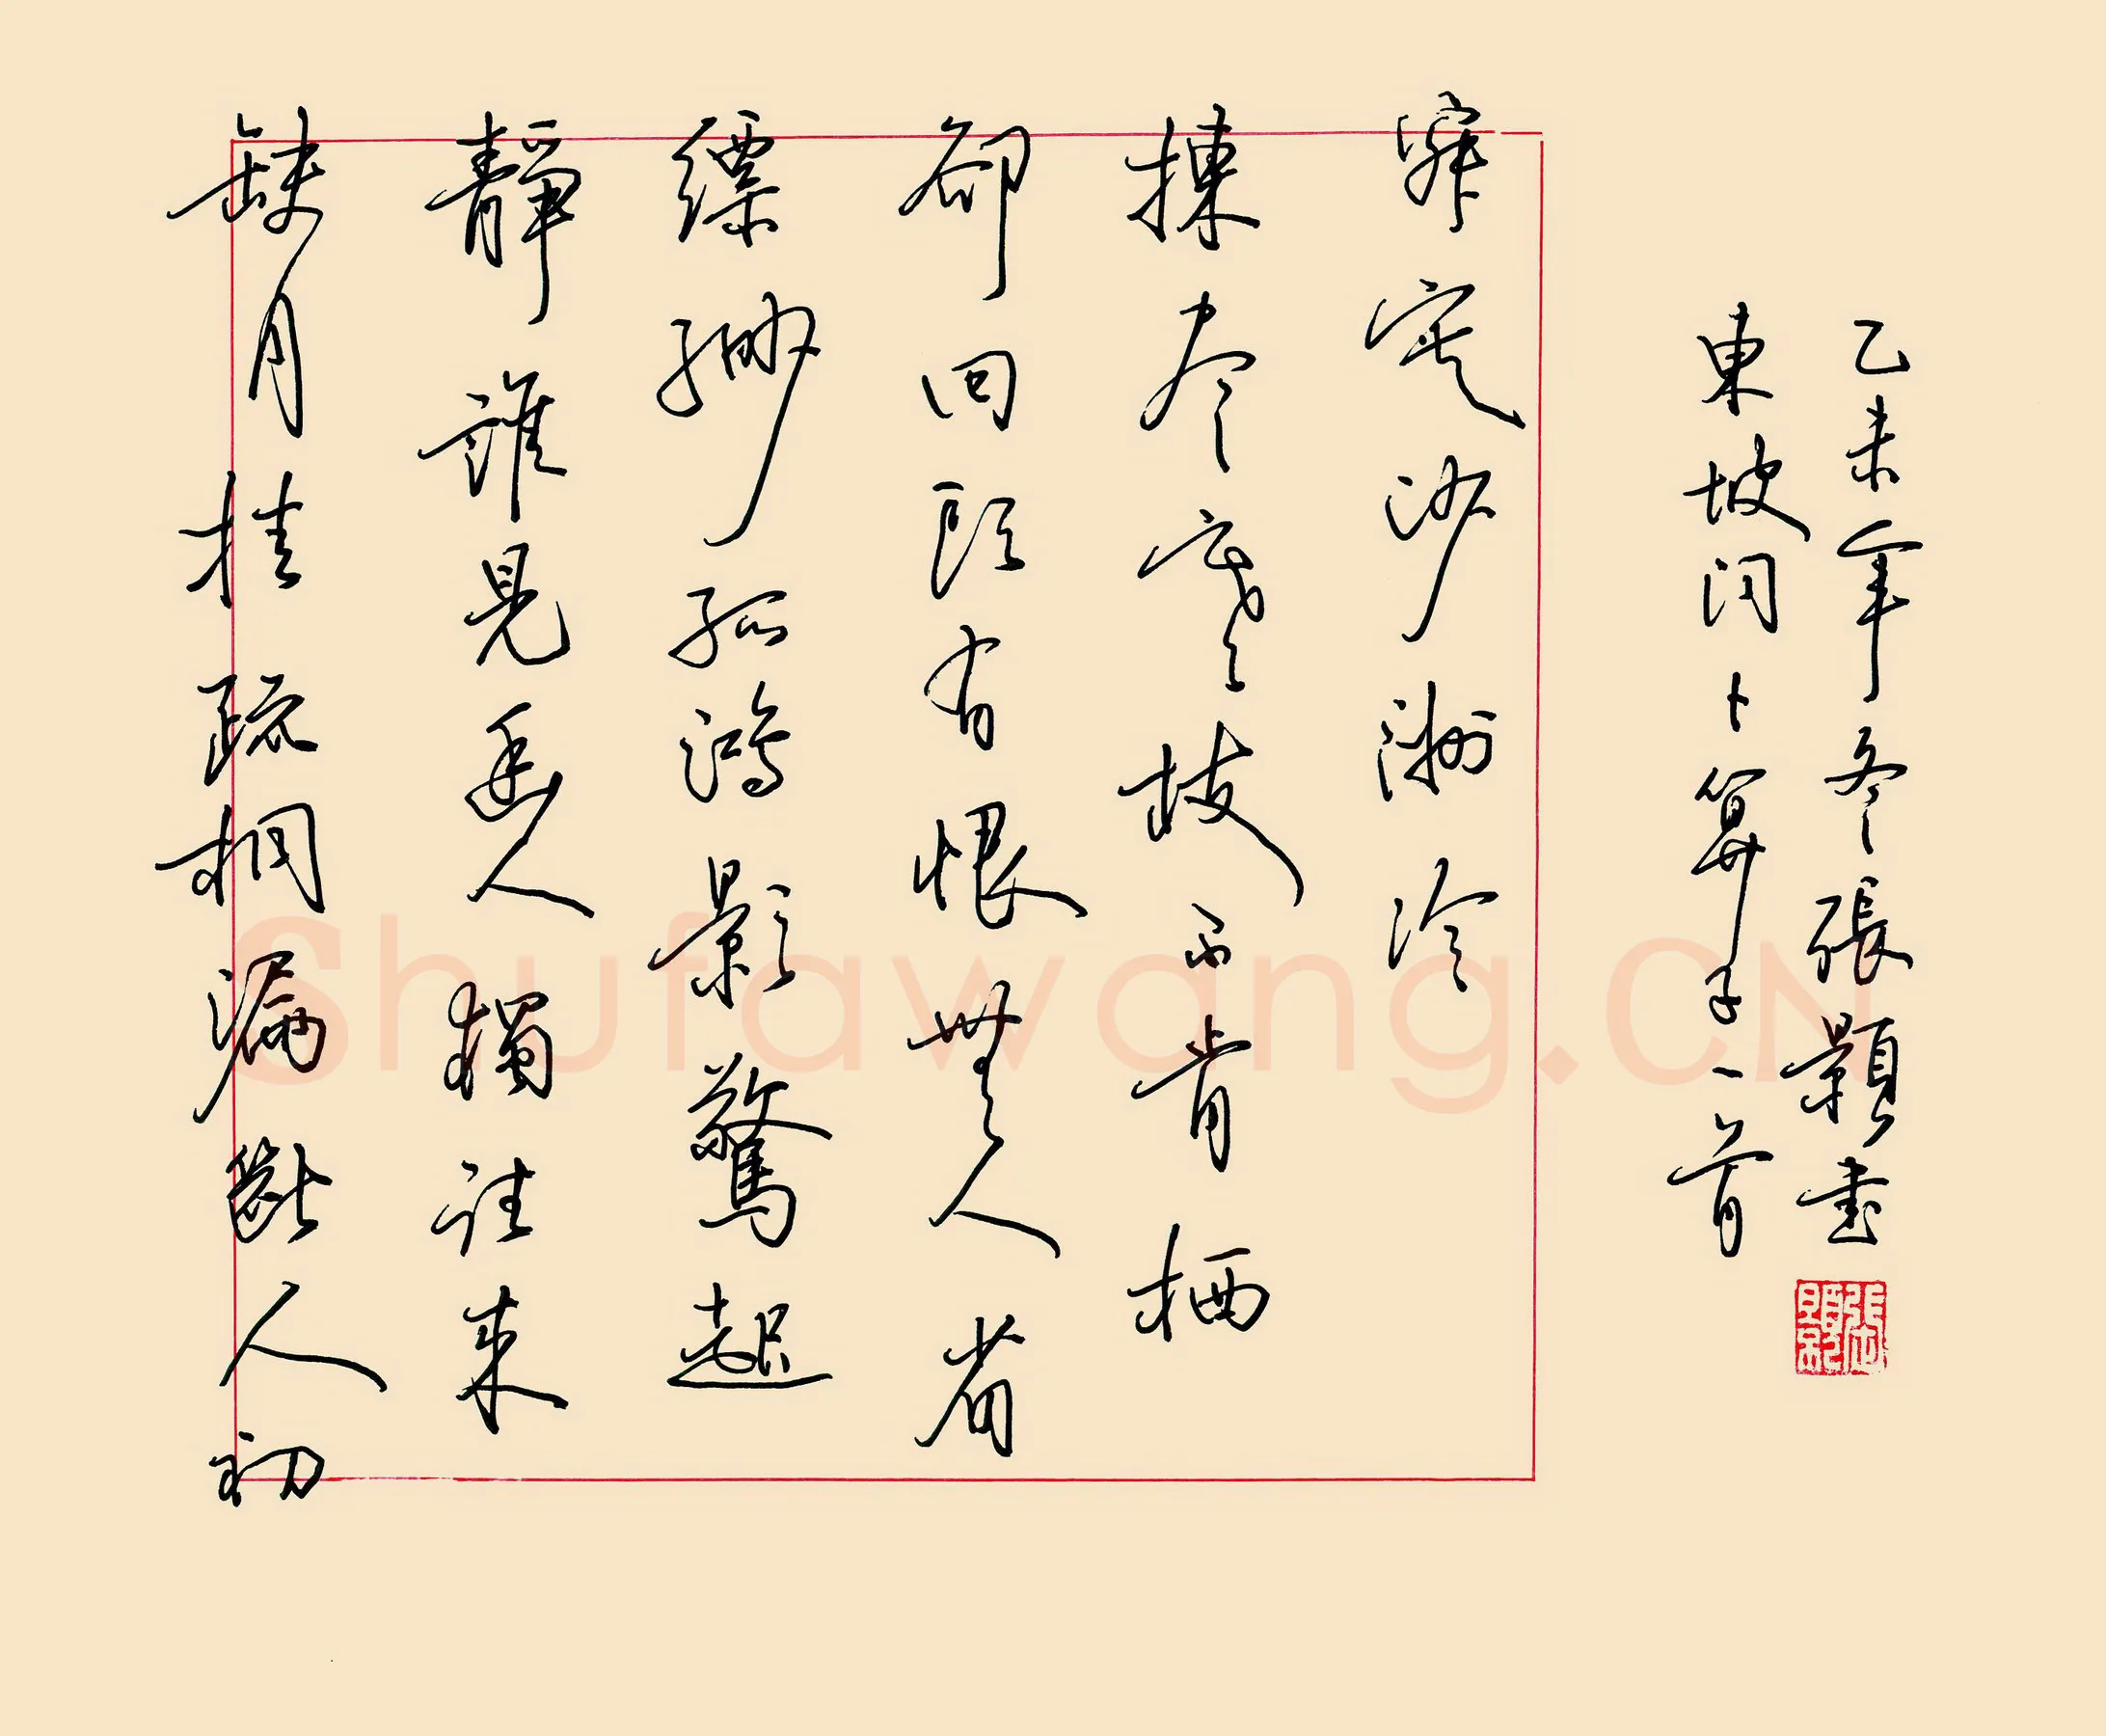 缺月挂疏桐漏斷人初
靜誰見幽人獨往来
縹緲孤鴻影驚起
卻回頭有恨無人省
揀尽寒枝不肯栖
寂寞沙洲冷
東坡词卜算子一首
乙未年冬張顥書
Shufawang.CN